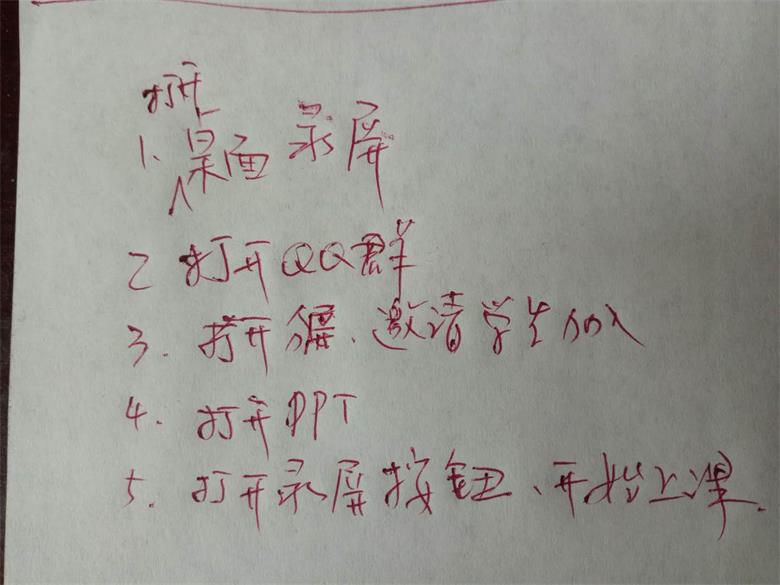 1、打开桌面录屏
2 打开QQ群
3. 打开分屏、邀请学生加入
4. 打开PPT
5. 打开录屏按钮、开始上课.